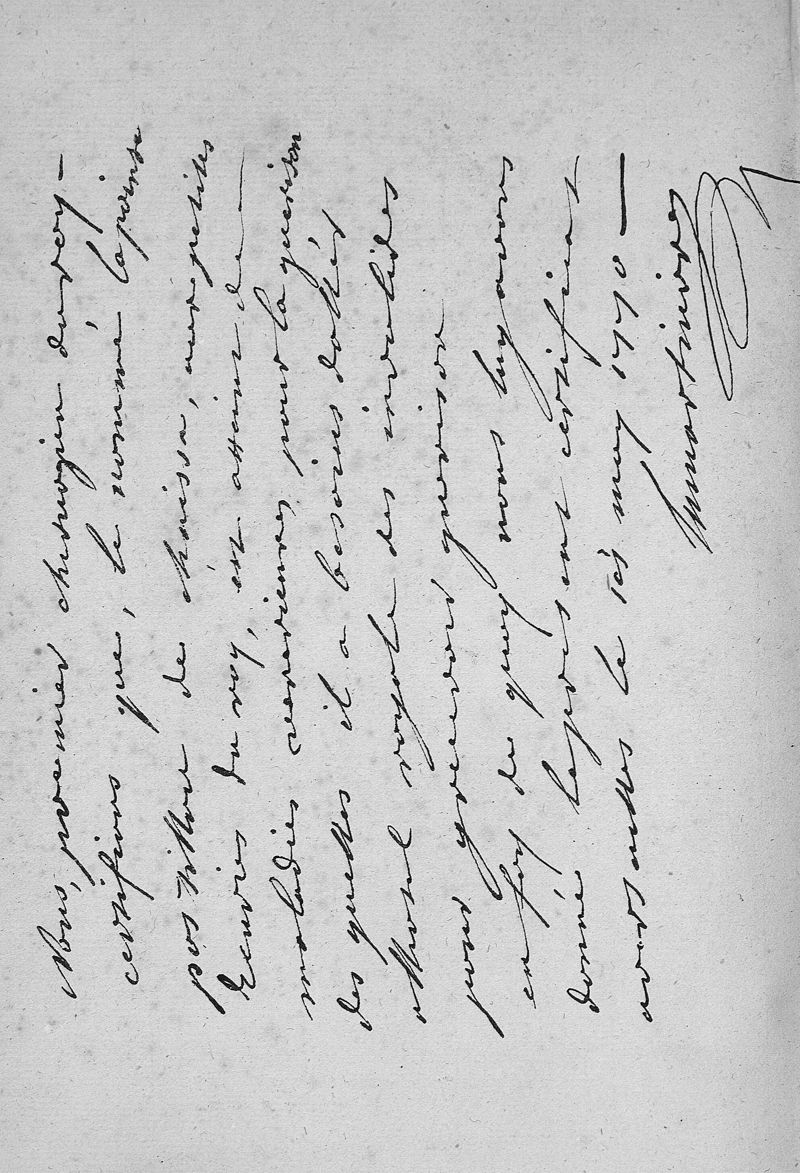 Nous, premier chirurgien du roy –
certifions que, le nommé la poinse
postillon de chaisse, aux petites
Ecuries du roy, est atteint de —
maladies veneriennes, pour la guerison
des quelles il a besoins dallér
alhotel royale des invalides
pour y recevoir guerison
en foy de quoy nous luy avons
donné le présent certificat
a versailles le 1er may 1770 —
Lamartiniere